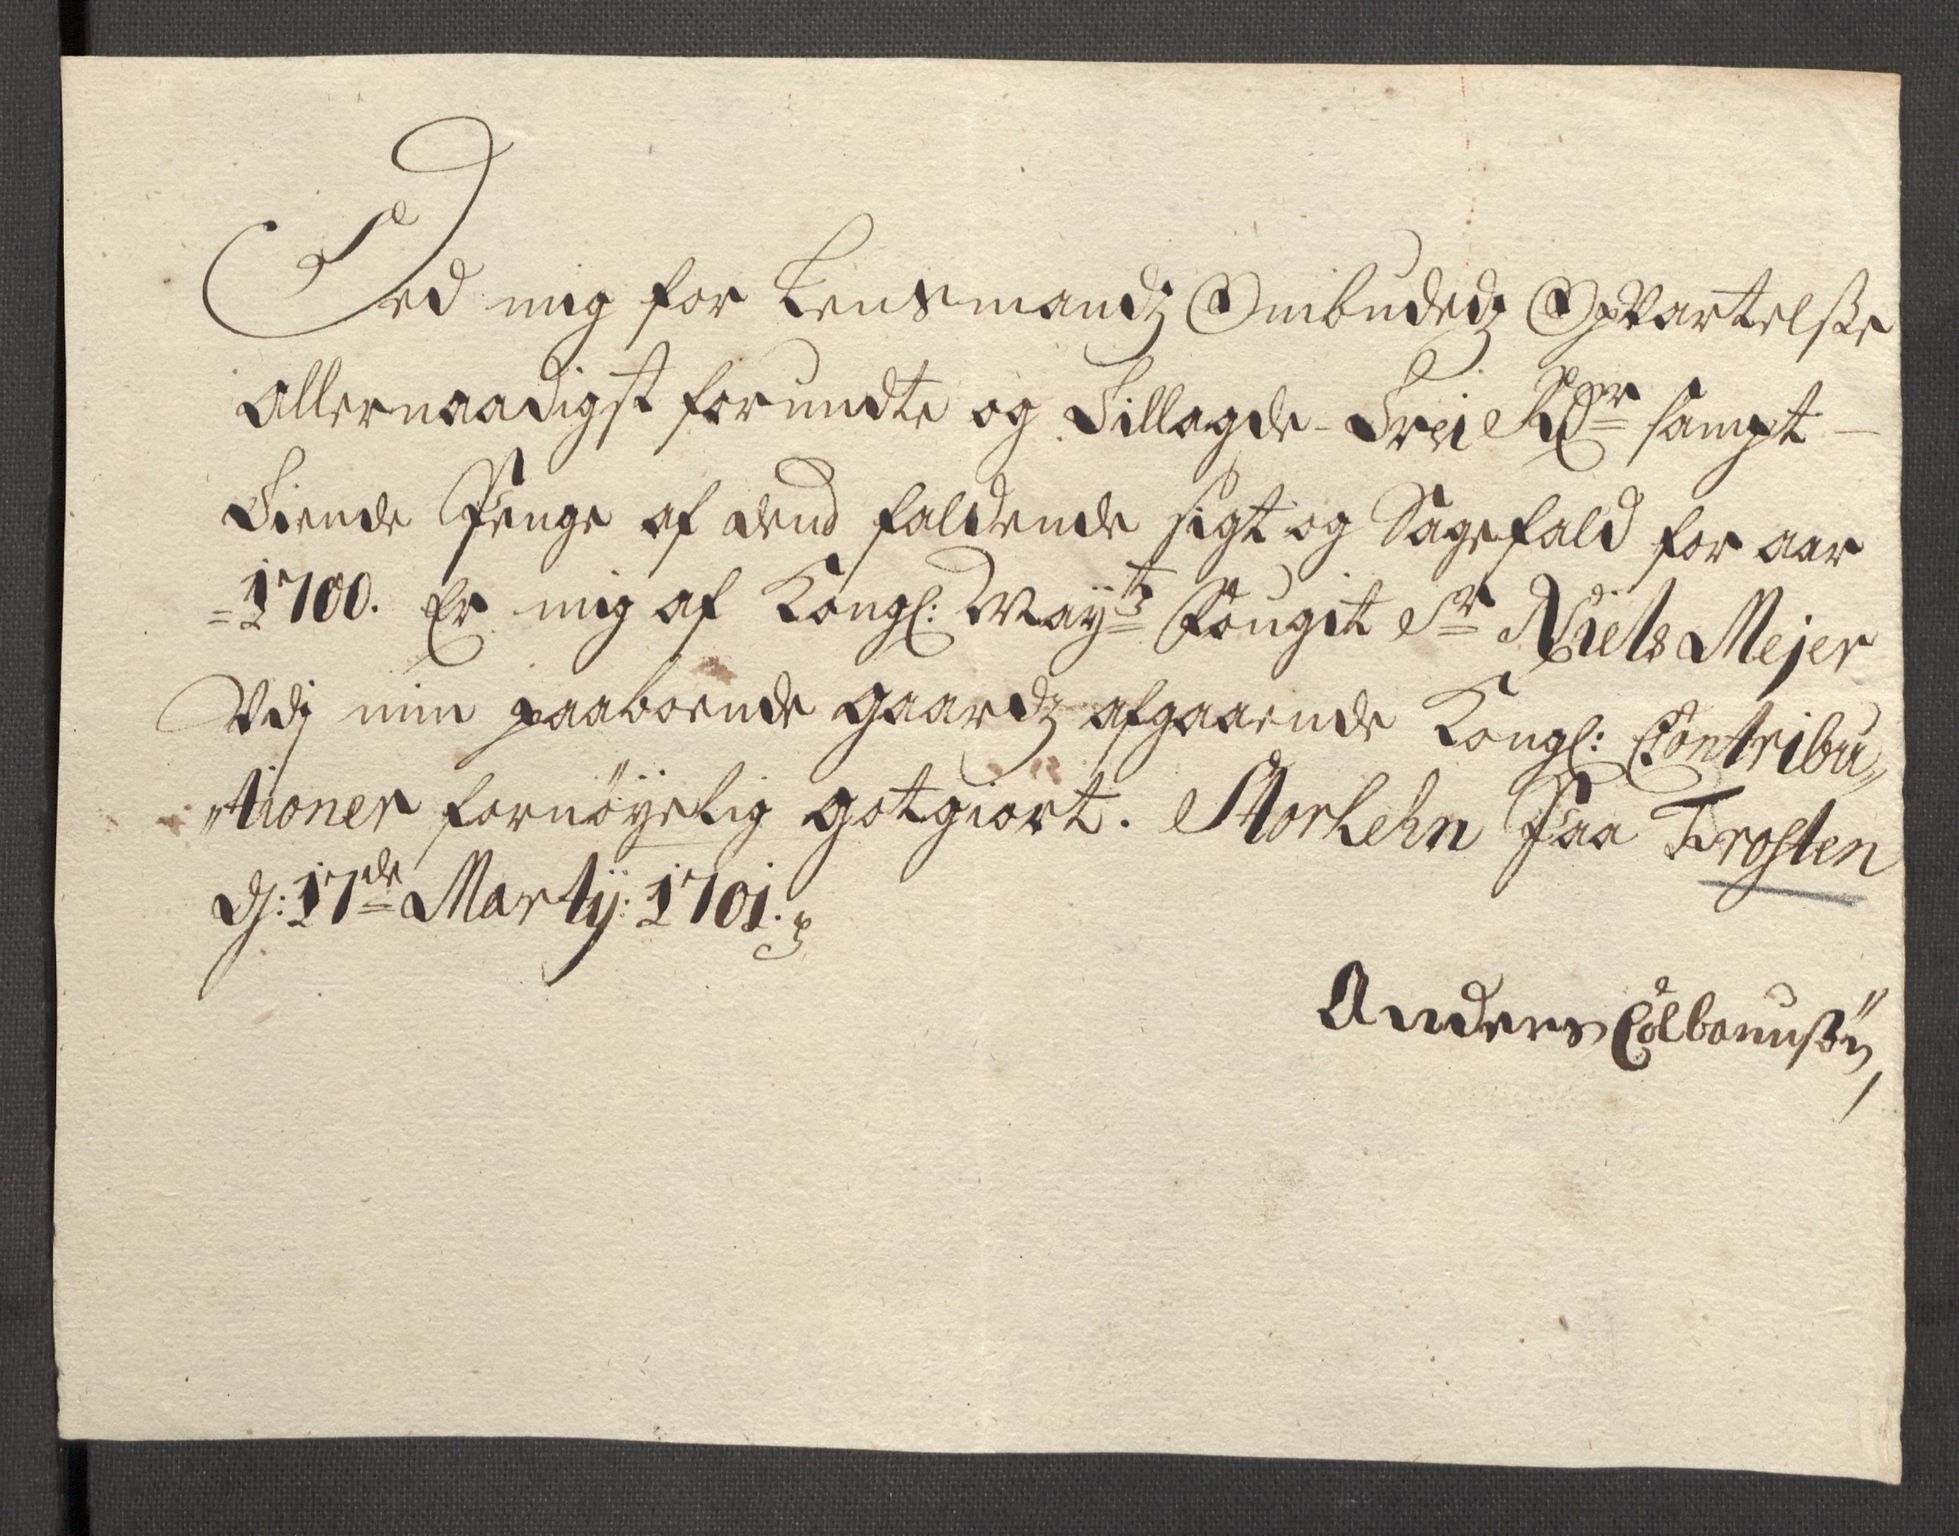 Ded mig for Lensmandz Ombudedz Opvartelsse
allernaadigst forundte og Tillagde Trei Rdr sampt
Tiende Penge af dend faldende sigt og Sagefald for aar
1700. Er mig af Kongl: Maytz Fougit Sr Niels Mejer
Vdj min paaboende gaardz afgaaende Kongl: Contribu„
„tioner fornöyelig gotgiort. Storlehn Paa Frosten
dj: 17de Martij: 1701.
Anders Colbonussön